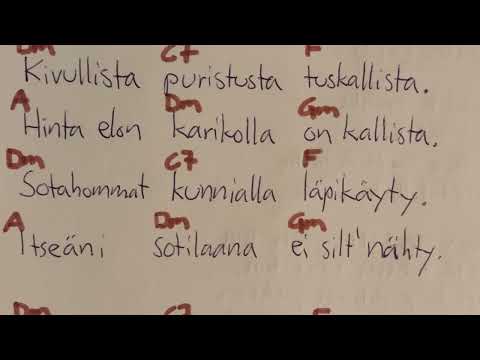 Dm C7 F
Kivullista puristusta tuskallista.
A Dm Gm
Hinta elon karikolla on kallista.
Dm C7 F
Sotahommat kunnialla läpikäyty.
A Dm Gm
Itseäni sotilaana ei silt' nähty.
Dm C7 F